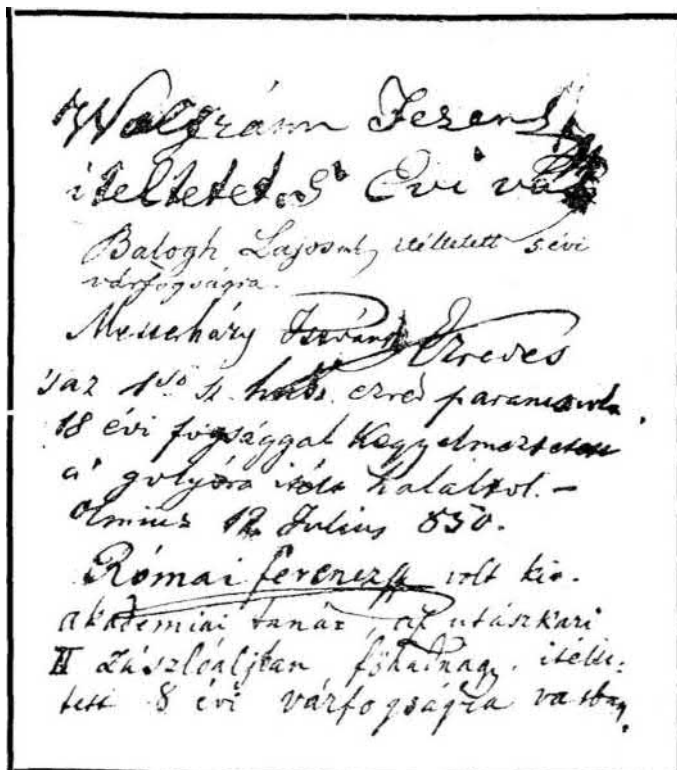 Wolfránn Ferencz
iteltetet 5 Évi va
Balogh Lajos ml, itéltetett 5 évi
várfogságra.
Meszerháry István Ezredes
's az 1ső sz. husz. ezred parancsn.
18 évi fogsággal kegyelmeztetett
a' golyóra itélt haláltol. –
Olmücz 12 Julius 850.
Római Ferencz volt kir.
akadémiai tanár, az utászkari
II Zászlóaljban főhadnagy. itélte-
tett 8 évi várfogságra vasban.